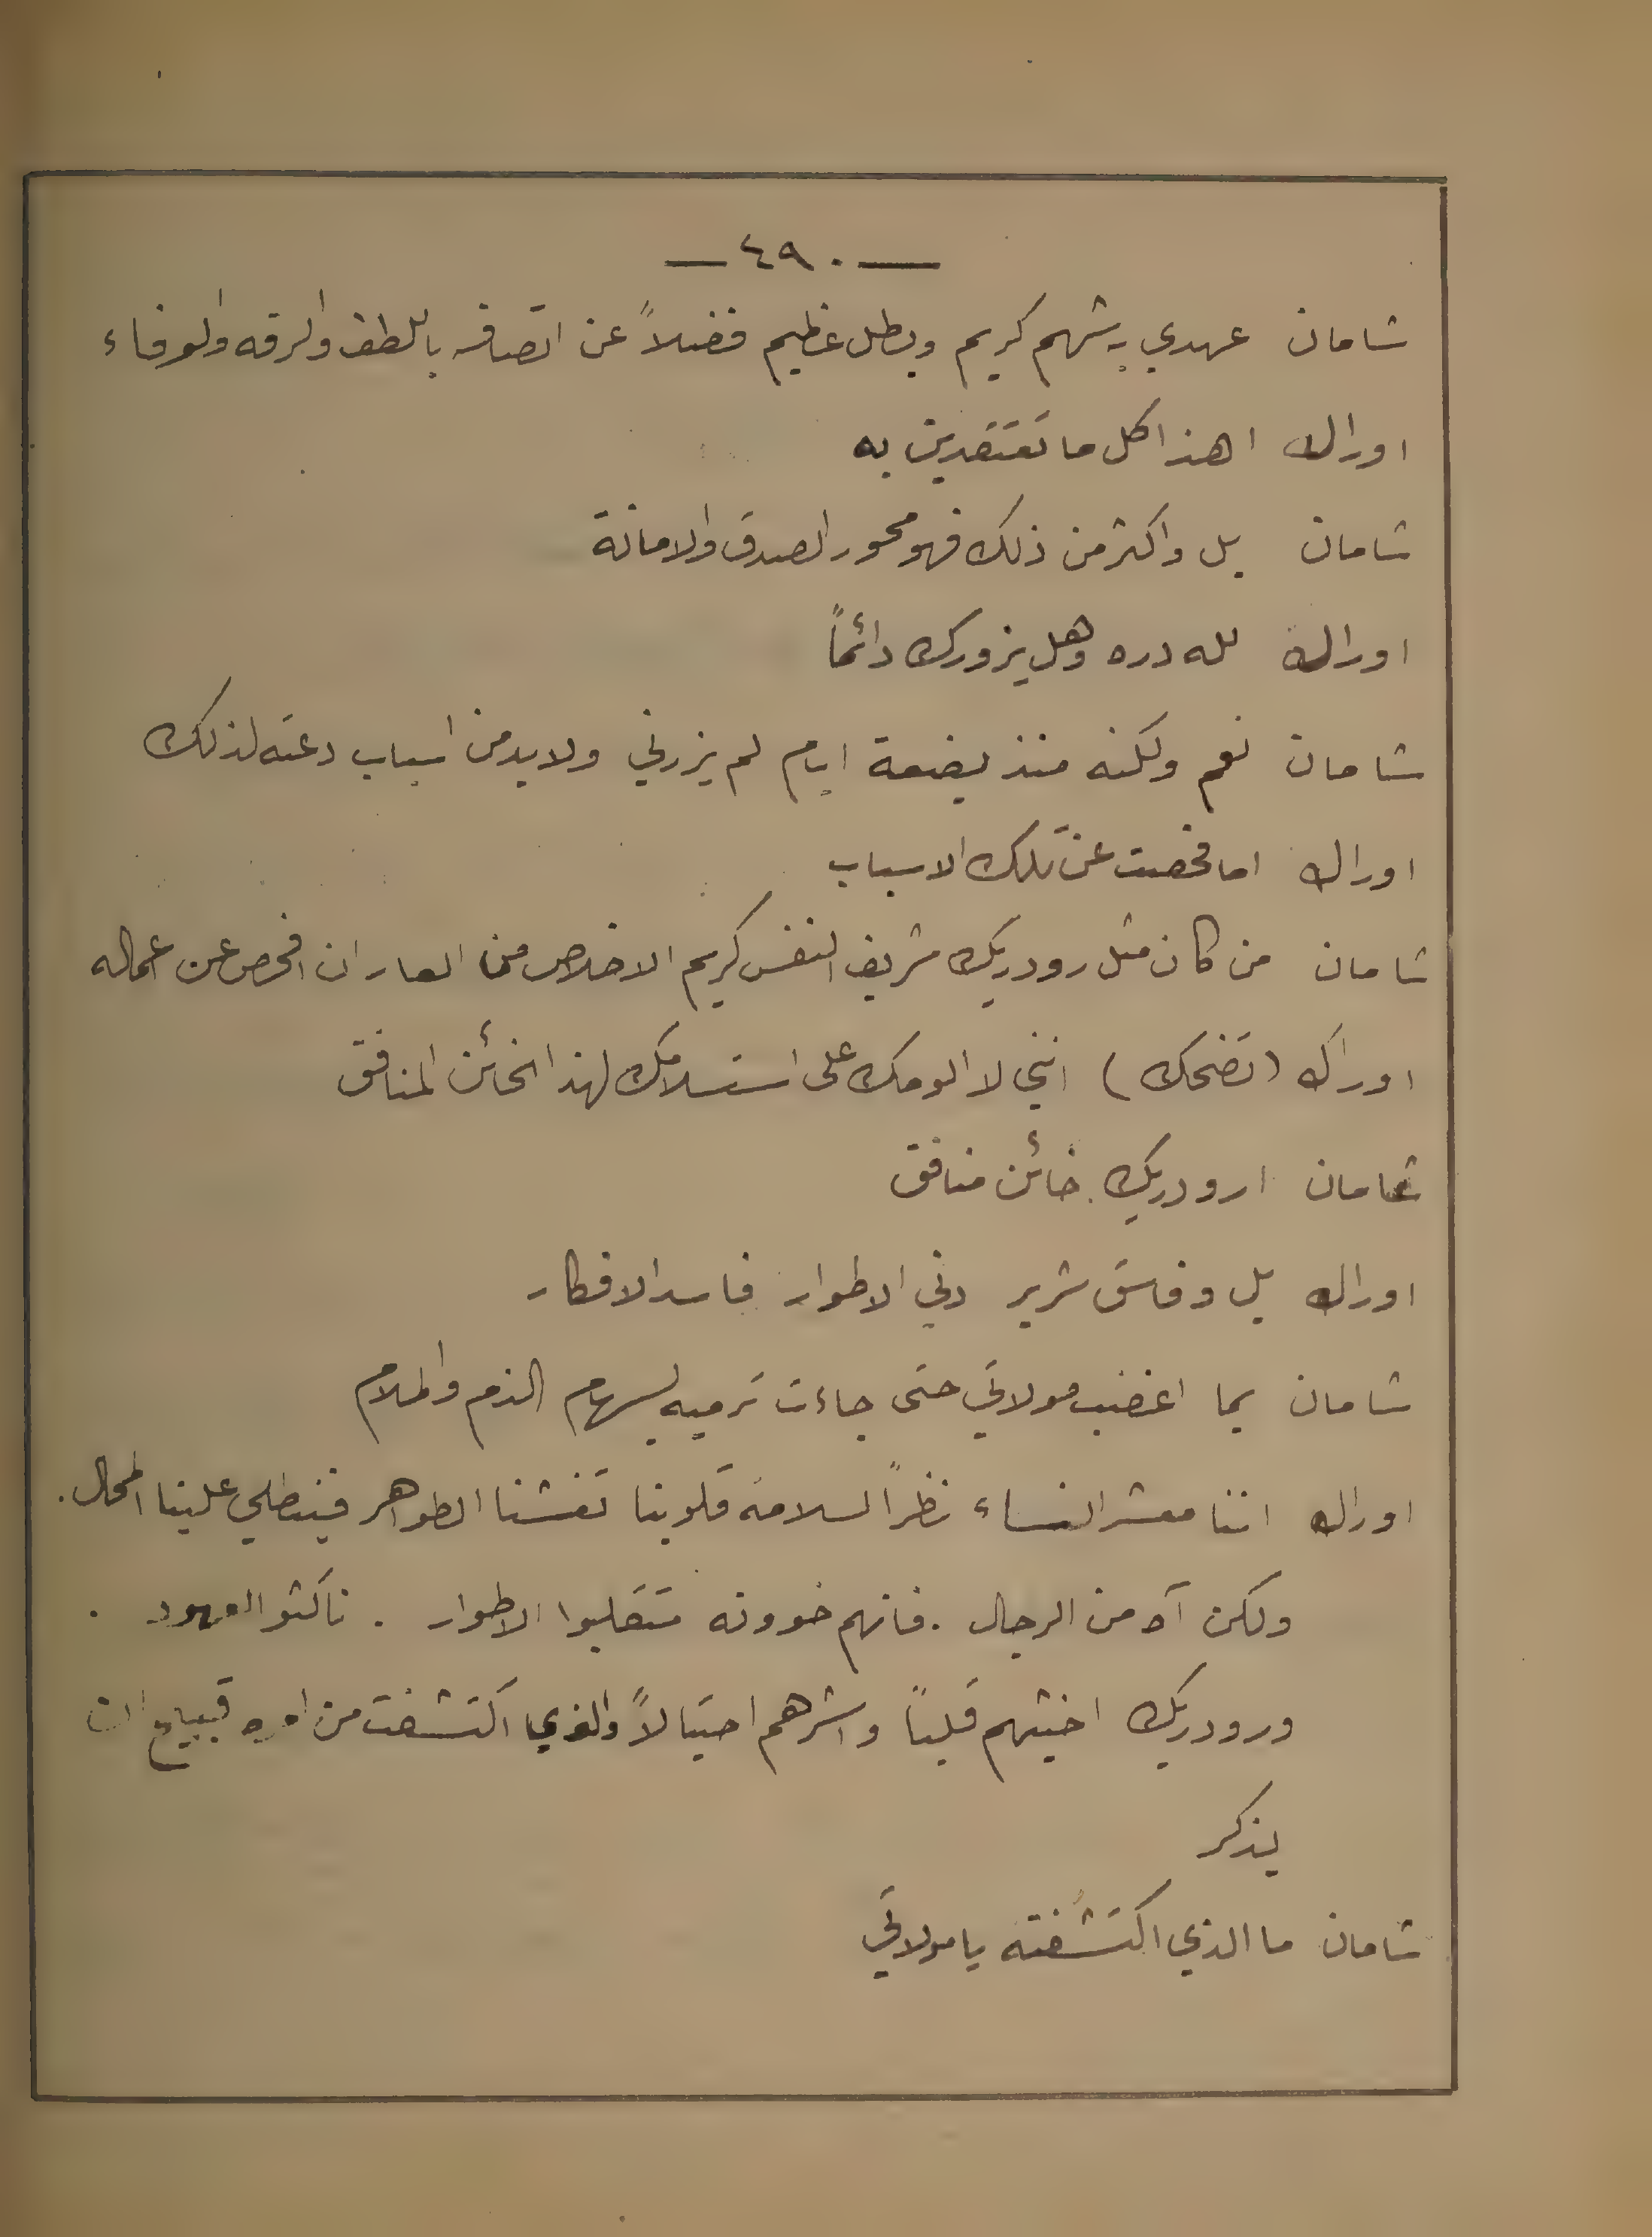 — ٤٩٠ —
شامان عهدي به شهم كريم وبطل عظيم فضلاً عن اتصافه باللطف والرقه والوفاء
اوراك اهذا كل ما تعتقدين به
شامان بل واكثر من ذلك فهو محور الصدق والامانة
اوراك لله دره وهل يزورك دائماً
شامان نعم ولكنه منذ بضعة ايام لم يزرني ولا بد من اسباب دعته لذلك
اوراك اما فحصت عن تلك الاسباب
شامان من كان مثل رودريك شريف النفس كريم الاخلاص فمن العار ان افحص عن اعماله
اوراك (تضحك) انني لا الومك على استسلامك لهذا الخائن المنافق
شامان ارودريك خائن منافق
اوراك بل وفاسق شرير دني الاطوار فاسد الافكار
شامان بما اغضب مولاتي حتى جاءت ترميه بسهام الذم والملام
اوراك اننا معشر النساء نظراً لسلامة قلوبنا تغشنا الظواهر فينطلي علينا المحال.
ولكن آه من الرجال . فانهم خوونه متقلبوا الاطوار . ناكثو العهود .
ورودريك اخبثهم قلباً واشرهم احتيالاً والذي اكتشفت من امره قبيح ان
يذكر
شامان ما الذي اكتشفته يا مولاتي